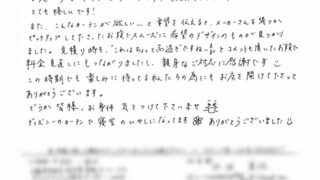 とても嬉しいです!
また、こんなカーテンが欲しい… と希望を伝えると、メーカーさんを
ピックアップして下さったお陰でスムーズに希望のデザインのものが見つかり
ました。見積り時も、「これはちょっと高過ぎですね」とコメント頂いたお陰で
料金見直しにもつながりましたし、親身なご対応に感謝です
この時期でも楽しみに待ってる私たちの為にもお店を開けて下さって
ありがとうございます。
どうか皆様、お身体気をつけて下さいませ
ディズニーのカーテンで寝室のいやしになってます ありがとうございました